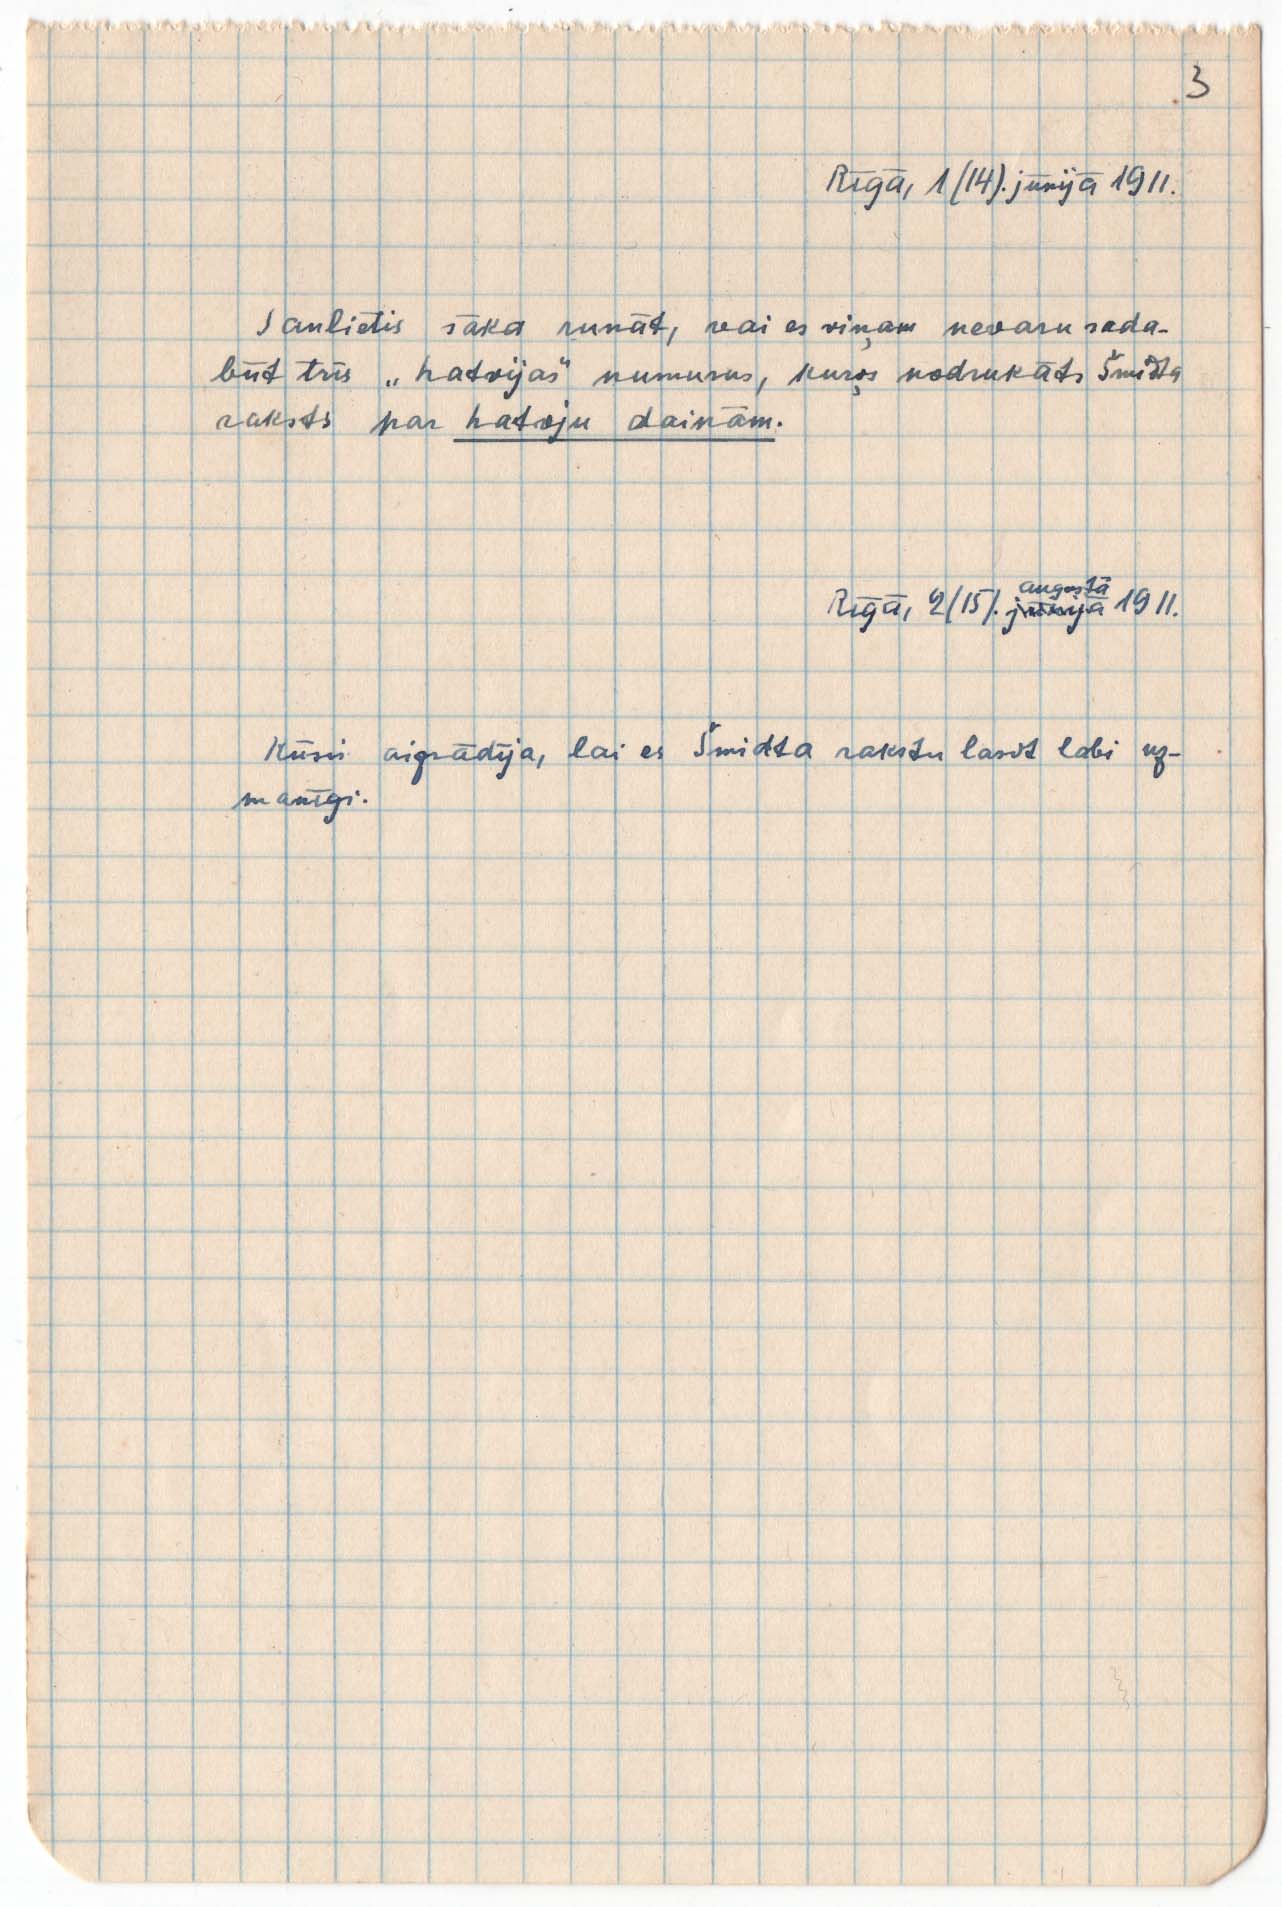 3
Rīgā, 1(14). jūnijā 1911.
Saulietis sāka runāt, vai es viņam nevaru sada-
būt trīs „Latvijas" numurus, kuŗos nodrukāts Šmidta
raksts par Latvju dainām.
augustā
Rīgā, 2(15). jūnijā 1911.
aizrādīja, lai es Šmidta rakstu lasot labi uz-
manīgi.